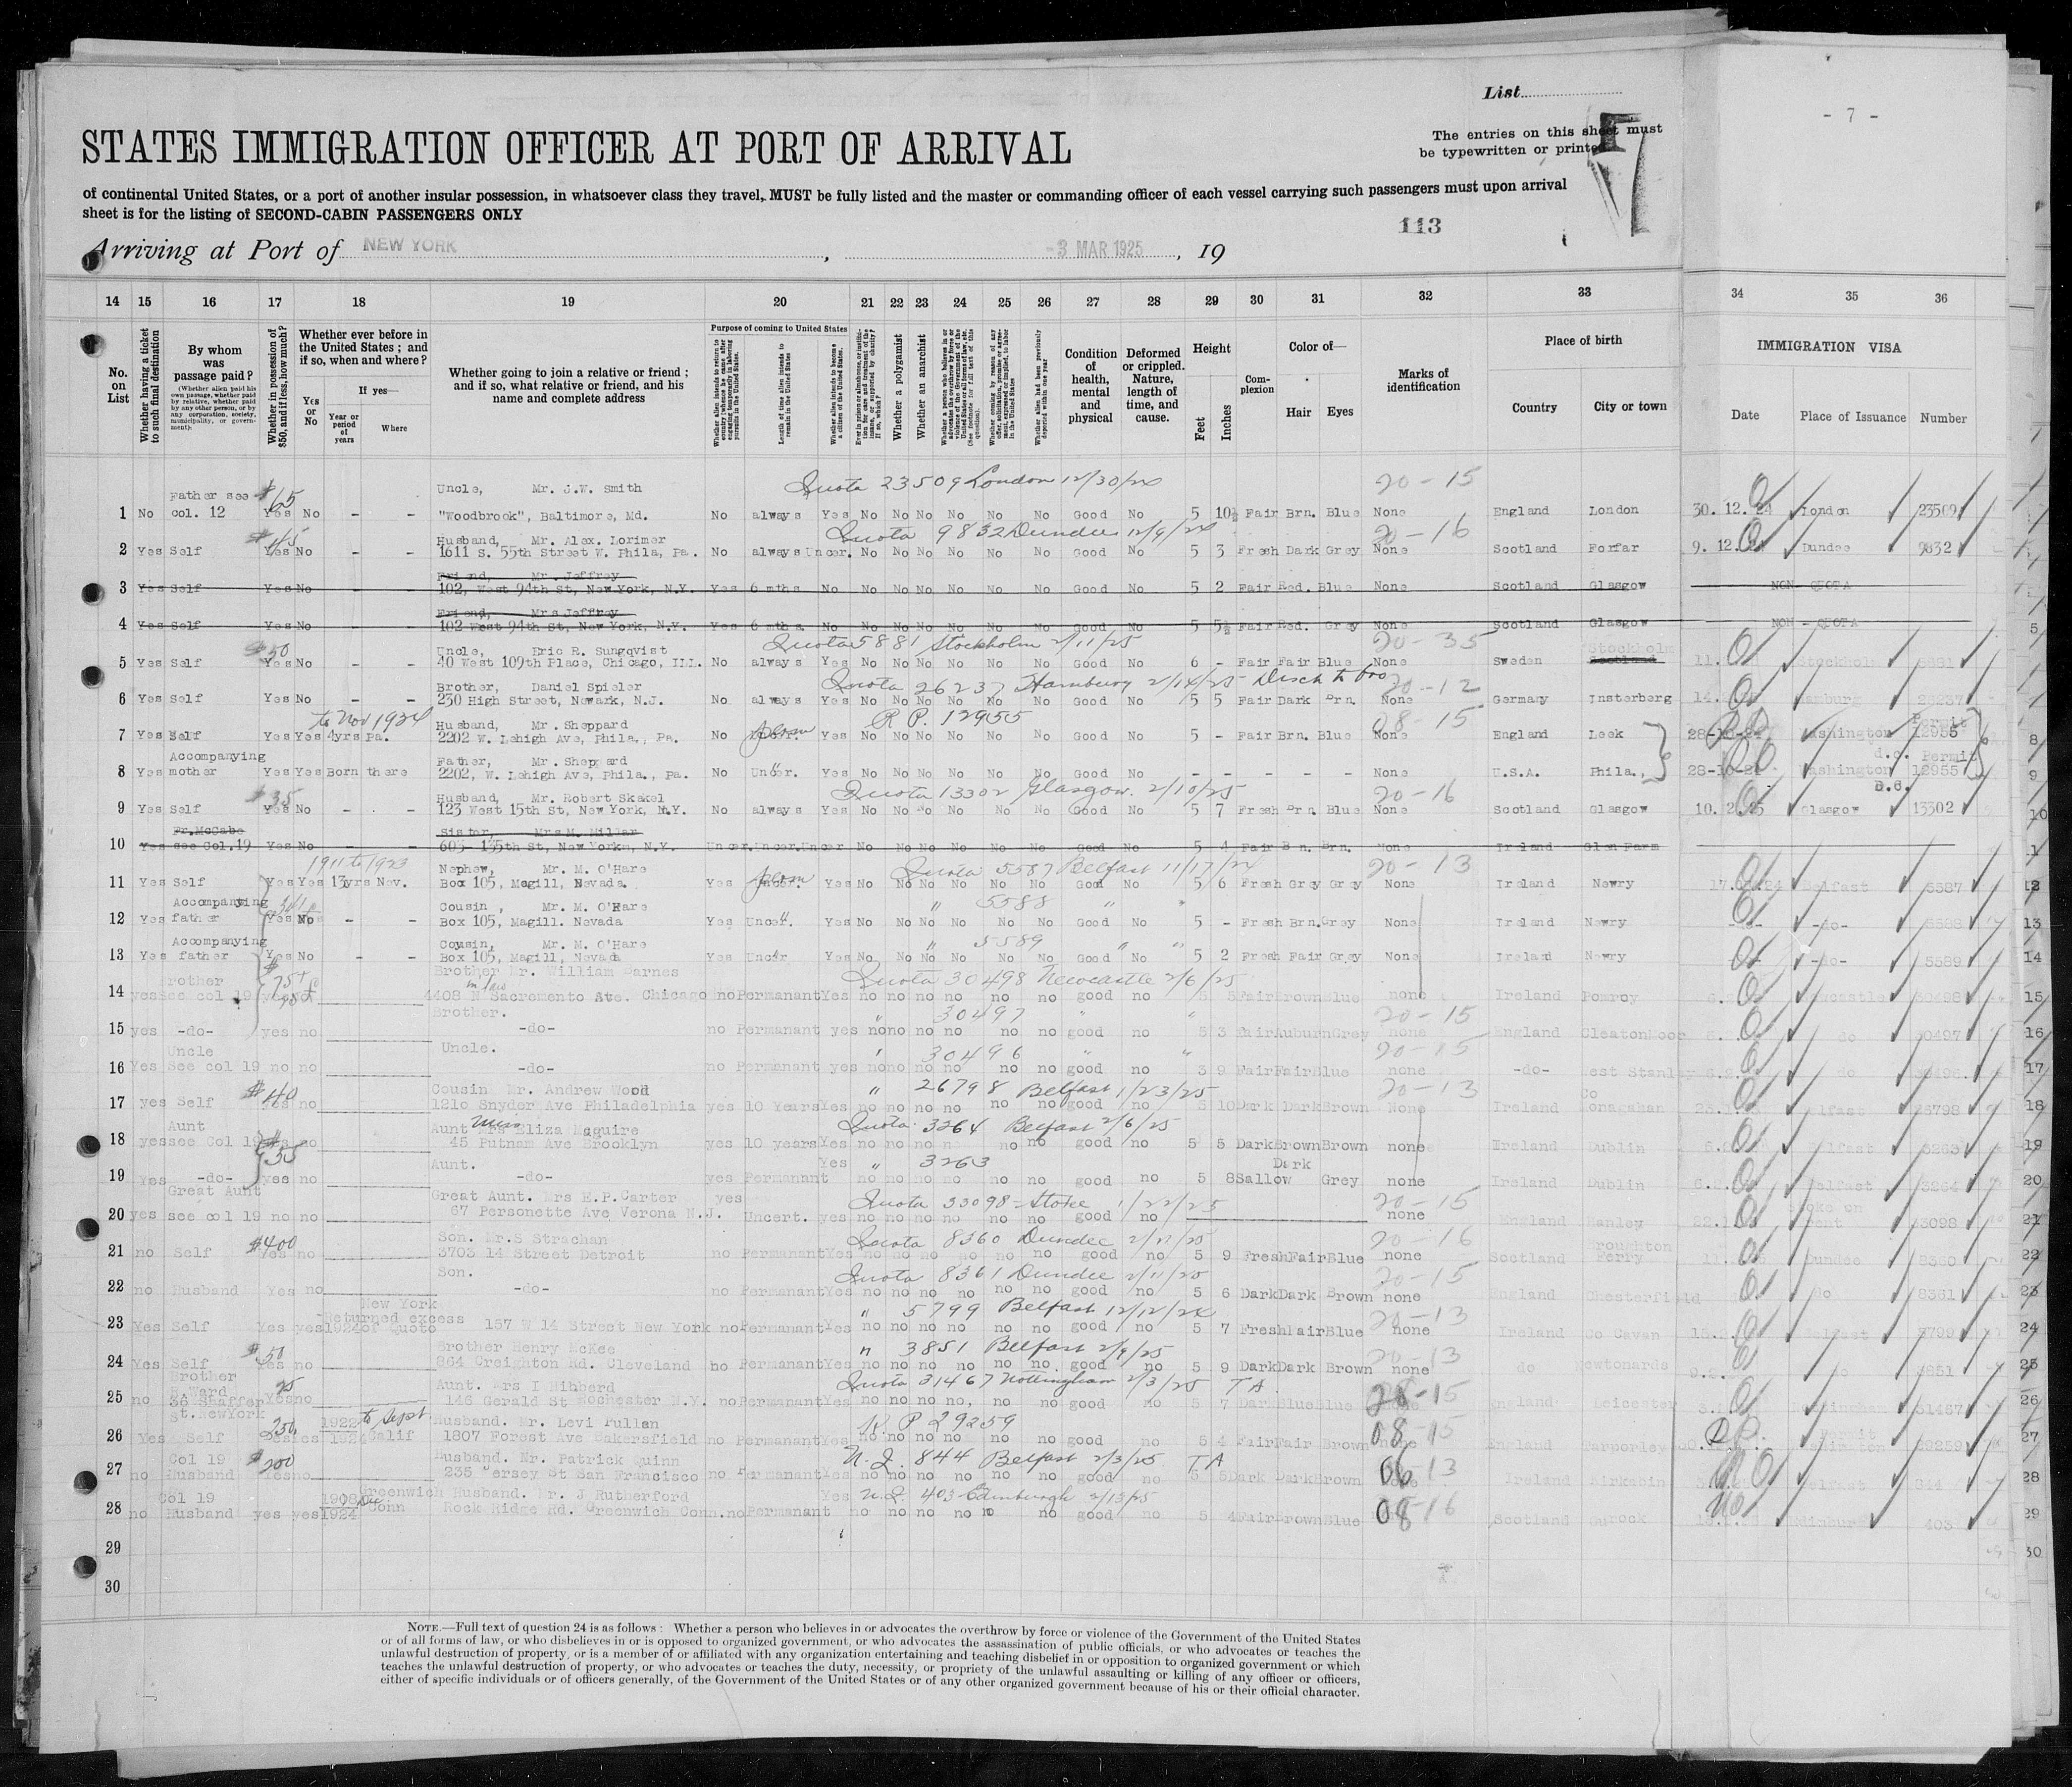 List
- 7 -
STATES IMMIGRATION OFFICER AT PORT OF ARRIVAL
The entries on this sheet must
be typewritten or printed
of continental United States, or a port of another insular possession, in whatsoever class they travel, MUST be fully listed and the master or commanding officer of each vessel carrying such passengers must upon arrival
sheet is for the listing of SECOND-CABIN PASSENGERS ONLY
113
Arriving at Port of NEW YORK , -3 MAR 1925 , 19
14 15 16 17 18 19 20 21 22 23 24 25 26 27 28 29 30 31 32 33 34 35 36
No. on List
Whether having a ticket to such final destination
By whom was passage paid?
(Whether alien paid his own passage, whether paid by relative, whether paid by any other person, or by any corporation, society, municipality, or government)
Whether in possession of $50, and if less, how much?
Whether ever before in the United States; and if so, when and where?
Yes or No
If yes—
Year or period of years
Where
Whether going to join a relative or friend; and if so, what relative or friend, and his name and complete address
Purpose of coming to United States
Length of time alien intends to remain in the United States
Whether alien intends to become a citizen of the United States
Whether a polygamist
Whether an anarchist
Condition of health, mental and physical
Deformed or crippled. Nature, length of time, and cause.
Height
Feet
Inches
Complexion
Color of—
Hair Eyes
Marks of identification
Place of birth
Country City or town
IMMIGRATION VISA
Date Place of Issuance Number
Father see $65 Uncle, Mr. J.W. Smith Quota 23509 London 12/30/24 20-15
1 No col. 12 Yes No - - "Woodbrook", Baltimore, Md. No always Yes No No No No No No Good No 5 10½ Fair Brn. Blue None England London 30. 12. 24 London 23509
$45 Husband, Mr. Alex. Lorimer Quota 9832 Dundee 12/9/24 20-16
2 Yes Self Yes No - - 1611 S. 55th Street W. Phila, Pa. No always Uncer. No No No No No No Good No 5 3 Fresh Dark Grey None Scotland Forfar 9. 12. Dundee 9832
Friend, Mr. Jeffrey
3 Yes Self Yes No - - 102, West 94th St, New York, N.Y. Yes 6 mths No No No No No No No Good No 5 2 Fair Red. Blue None Scotland Glasgow NON-QUOTA
Friend, Mrs Jeffrey
4 Yes Self Yes No - - 102 West 94th St, New York, N.Y. Yes 6 mths No No No No No No No Good No 5 5½ Fair Red. Grey None Scotland Glasgow NON-QUOTA
$50 Uncle, Eric R. Sungqvist Quota 5881 Stockholm 2/11/25 20-35 Stockholm
5 Yes Self Yes No - - 40 West 109th Place, Chicago, Ill. No always Yes No No No No No No Good No 6 - Fair Fair Blue None Sweden Scotland 11. Stockholm 5881
Brother, Daniel Spieler Quota 26237 Hamburg 2/14/25 Disch to bro 20-12
6 Yes Self Yes No - - 230 High Street, Newark, N.J. No always Yes No No No No No No Good No 5 5 Fair Dark Brn. None Germany Insterberg 14. Hamburg 26237
to Nov 1924 Husband, Mr. Sheppard R.P. 12955 08-15 Permit
7 Yes Self Yes Yes 4yrs Pa. 2202 W. Lehigh Ave, Phila., Pa. No Yes No No No No No No Good No 5 - Fair Brn. Blue None England Leek 28-10-24 Washington 12955
Accompanying Father, Mr. Sheppard d.c. Permit
8 Yes mother Yes Yes Born there 2202, W. Lehigh Ave, Phila., Pa. No Uncer. Yes No No No No No No Good No - - - - - None U.S.A. Phila., 28-10-24 Washington 12955
$35 Husband, Mr. Robert Skakel Quota 13302 Glasgow 2/10/25 20-16 D.C.
9 Yes Self Yes No - - 123 West 15th St, New York, N.Y. No always Yes No No No No No No Good No 5 7 Fresh Brn. Blue None Scotland Glasgow 10. 2. 25 Glasgow 13302
Fr.McCabe Sister, Mrs M. Millar
10 Yes see Col.19 Yes No 603- 135th St, New York, N.Y. Uncer. Uncer. Uncer No No No No No No Good No 5 4 Fair Brn. Brn. None Ireland Glen Farm
1911 to 1923 Nephew, Mr. M. O'Hare Quota 5587 Belfast 11/17/24 20-13
11 Yes Self Yes Yes 13yrs Nev. Box 105, Magill, Nevada. Yes Uncer. Yes No No No No No No Good No 5 6 Fresh Grey Grey None Ireland Newry 17. 24 Belfast 5587
Accompanying Cousin, Mr. M. O'Hare " 5588 " "
12 Yes father Yes No - - Box 105, Magill. Nevada Yes Uncer. Yes No No No No No No Good No 5 - Fresh Brn. Grey None Ireland Newry -do- -do- 5588
Accompanying Cousin, Mr. M. O'Hare " 5589 " "
13 Yes father Yes No - - Box 105, Magill, Nevada Yes Uncer Yes No No No No No No Good No 5 2 Fresh Fair Grey None Ireland Newry -do- 5589
Brother Brother in law Mr. William Barnes Quota 30498 Newcastle 2/6/25
14 yes see col 19 yes 4408 N Sacramento Ave. Chicago no Permanant Yes no no no no no no good no 5 5 Fair Brown Blue none Ireland Pomroy 6. Newcastle 30498
Brother. " 30497 " " 20-15
15 yes -do- yes no -do- no Permanant yes no no no no no no good no 5 3 Fair Auburn Grey none England Cleator Moor 6. do 30497
Uncle Uncle. " 30496 " " 20-15
16 Yes See col 19 no no -do- no Permanant yes no no no no no no good no 3 9 Fair Fair Blue none -do- West Stanley 6.2. do 30496
$40 Cousin Mr. Andrew Wood " 26798 Belfast 1/23/25 20-13 Co
17 yes Self Yes no 1210 Snyder Ave Philadelphia yes 10 Years Yes no no no no no no good no 5 10 Dark Dark Brown None Ireland Monaghan 23.1. Belfast 26798
Aunt Aunt Miss Eliza Maguire Quota 3264 Belfast 2/6/25
18 yes see Col 19 $55 yes no 45 Putnam Ave Brooklyn yes 10 years Yes no no no no no no good no 5 5 Dark Brown Brown none Ireland Dublin 6. Belfast 3263
Aunt. Yes " 3263 Dark
19 Yes -do- yes no -do- yes Permanant no no no no no no good no 5 8 Sallow Grey none Ireland Dublin 6. Belfast 3264
Great Aunt Great Aunt. Mrs E.P.Carter yes Quota 33098 Stoke 1/22/25 20-15 Stoke on
20 yes see col 19 no no 67 Personette Ave Verona N.J. Uncert. yes no no no no no no good no none England Hanley 22.1. Trent 33098
$400 Son. Mr.S Strachan Quota 8360 Dundee 2/11/25 20-16 Broughton
21 no Self Yes no 3703 14 Street Detroit no Permanant Yes no no no no no no good no 5 9 Fresh Fair Blue none Scotland Ferry 11. Dundee 8360
Son. Quota 8361 Dundee 2/11/25 20-15
22 no Husband Yes no -do- no Permanant Yes no no no no no no good no 5 6 Dark Dark Brown none England Chesterfield do 8361
New York Returned excess " 5799 Belfast 12/12/24 20-13
23 Yes Self Yes yes 1924 of Quoto 157 W 14 Street New York no Permanant Yes no no no no no no good no 5 7 Fresh Fair Blue none Ireland Co Cavan 12. Belfast 5799
$50 Brother Henry McKee " 3851 Belfast 2/9/25 20-13
24 Yes Self Yes no 864 Creighton Rd. Cleveland no Permanant Yes no no no no no no good no 5 9 Dark Dark Brown none do Newtonards 9.2. do 3851
Brother R.Ward 25 Aunt. Mrs I Hibberd Quota 31467 Nottingham 2/3/25 T A. 20-15
25 no 36 Shaffer Yes no 146 Gerald St Rochester N.Y. no Permanant Yes no no no no, no no good no 5 7 Dark Blue Blue none England Leicester 3. Nottingham 31467
St.NewYork 250 1922 to Sept Husband. Mr. Levi Pullen R.P 29259 08-15 Permit
26 Yes Self Yes yes 1924 Calif 1807 Forest Ave Bakersfield no Permanant Yes no no no no no no good no 5 4 Fair Fair Brown none England Tarporley Washington 29259
Col 19 $200 Husband. Mr. Patrick Quinn N.Q. 844 Belfast 2/3/25 T A 06-13
27 no Husband Yes no 235 Jersey St San Francisco no Permanant Yes no no no no no no good no 5 5 Dark Dark Brown none Ireland Kirkabin 3. Belfast 844
Col 19 1908 Dec Greenwich Husband. Mr. J Rutherford Yes N.Q. 403 Edinburgh 2/13/25 08-16
28 no Husband yes yes 1924 Conn Rock Ridge Rd. Greenwich Conn. no Permanant no no no no no no good no 5 4 Fair Brown Blue Scotland Durock Edinburgh 403
29
30
NOTE.—Full text of question 24 is as follows: Whether a person who believes in or advocates the overthrow by force or violence of the Government of the United States
or of all forms of law, or who disbelieves in or is opposed to organized government, or who advocates the assassination of public officials, or who advocates or teaches the
unlawful destruction of property, or is a member of or affiliated with any organization entertaining and teaching disbelief in or opposition to organized government or which
teaches the unlawful destruction of property, or who advocates or teaches the duty, necessity, or propriety of the unlawful assaulting or killing of any officer or officers,
either of specific individuals or of officers generally, of the Government of the United States or of any other organized government because of his or their official character.